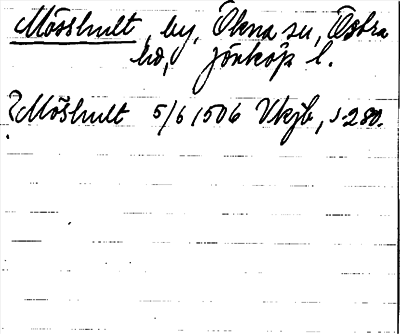 Mösshult, by, Ökna sn, Östra
hd, Jönköp l.
?Möshult 5/6 1506 Vkjb, s 280.